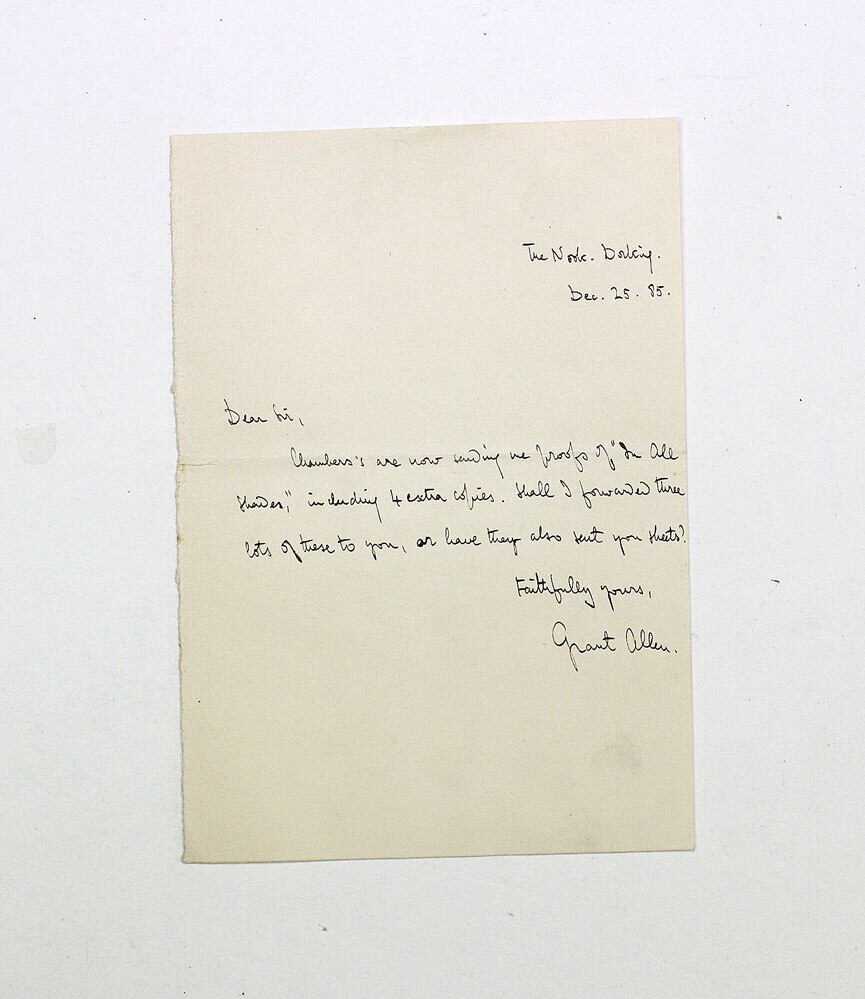 The Nook. Dorking.
Dec. 25. 85.
Dear Sir,
Chambers's are now sending me proofs of "In All
Shades," including 4 extra copies. Shall I forwarded three
lots of these to you, or have they also sent you sheets?
Faithfully yours,
Grant Allen.